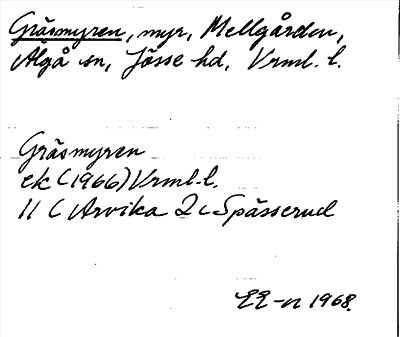 Gräsmyren, myr, Mellgården,
Älgå sn, Jösse hd, Vrml. l.
Gräsmyren
ek (1966) Vrml. l.
11 C Arvika 2 c Spässerud
EE-n 1968.